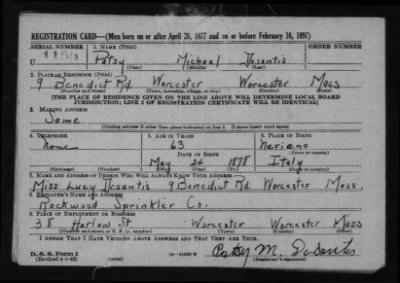 REGISTRATION CARD—(Men born on or after April 28, 1877 and on or before February 16, 1897)
SERIAL NUMBER 1. NAME (Print) ORDER NUMBER
U Patsy Michael Desantis
(First) (Middle) (Last)
2. PLACE OF RESIDENCE (Print)
9 Benedict Rd. Worcester Worcester Mass
(Number and street) (Town, township, village, or city) (County) (State)
[THE PLACE OF RESIDENCE GIVEN ON THE LINE ABOVE WILL DETERMINE LOCAL BOARD
JURISDICTION; LINE 2 OF REGISTRATION CERTIFICATE WILL BE IDENTICAL]
3. MAILING ADDRESS
Same
[Mailing address if other than place indicated on line 2. If same insert word same]
4. TELEPHONE 5. AGE IN YEARS 6. PLACE OF BIRTH
none 63 Neriano
DATE OF BIRTH (Town or county)
May 24 1878 Italy
(Exchange) (Number) (Mo.) (Day) (Yr.) (State or country)
7. NAME AND ADDRESS OF PERSON WHO WILL ALWAYS KNOW YOUR ADDRESS
Miss Lucy Desantis 9 Benedict Rd. Worcester Mass.
8. EMPLOYER'S NAME AND ADDRESS
Rockwood Sprinkler Co.
9. PLACE OF EMPLOYMENT OR BUSINESS
38 Harlow St Worcester Worcester Mass
(Number and street or R. F. D. number) (Town) (County) (State)
I AFFIRM THAT I HAVE VERIFIED ABOVE ANSWERS AND THAT THEY ARE TRUE.
D. S. S. Form 1 Patsy M. DeSantis
(Revised 4-1-42) (over) (Registrant's signature)